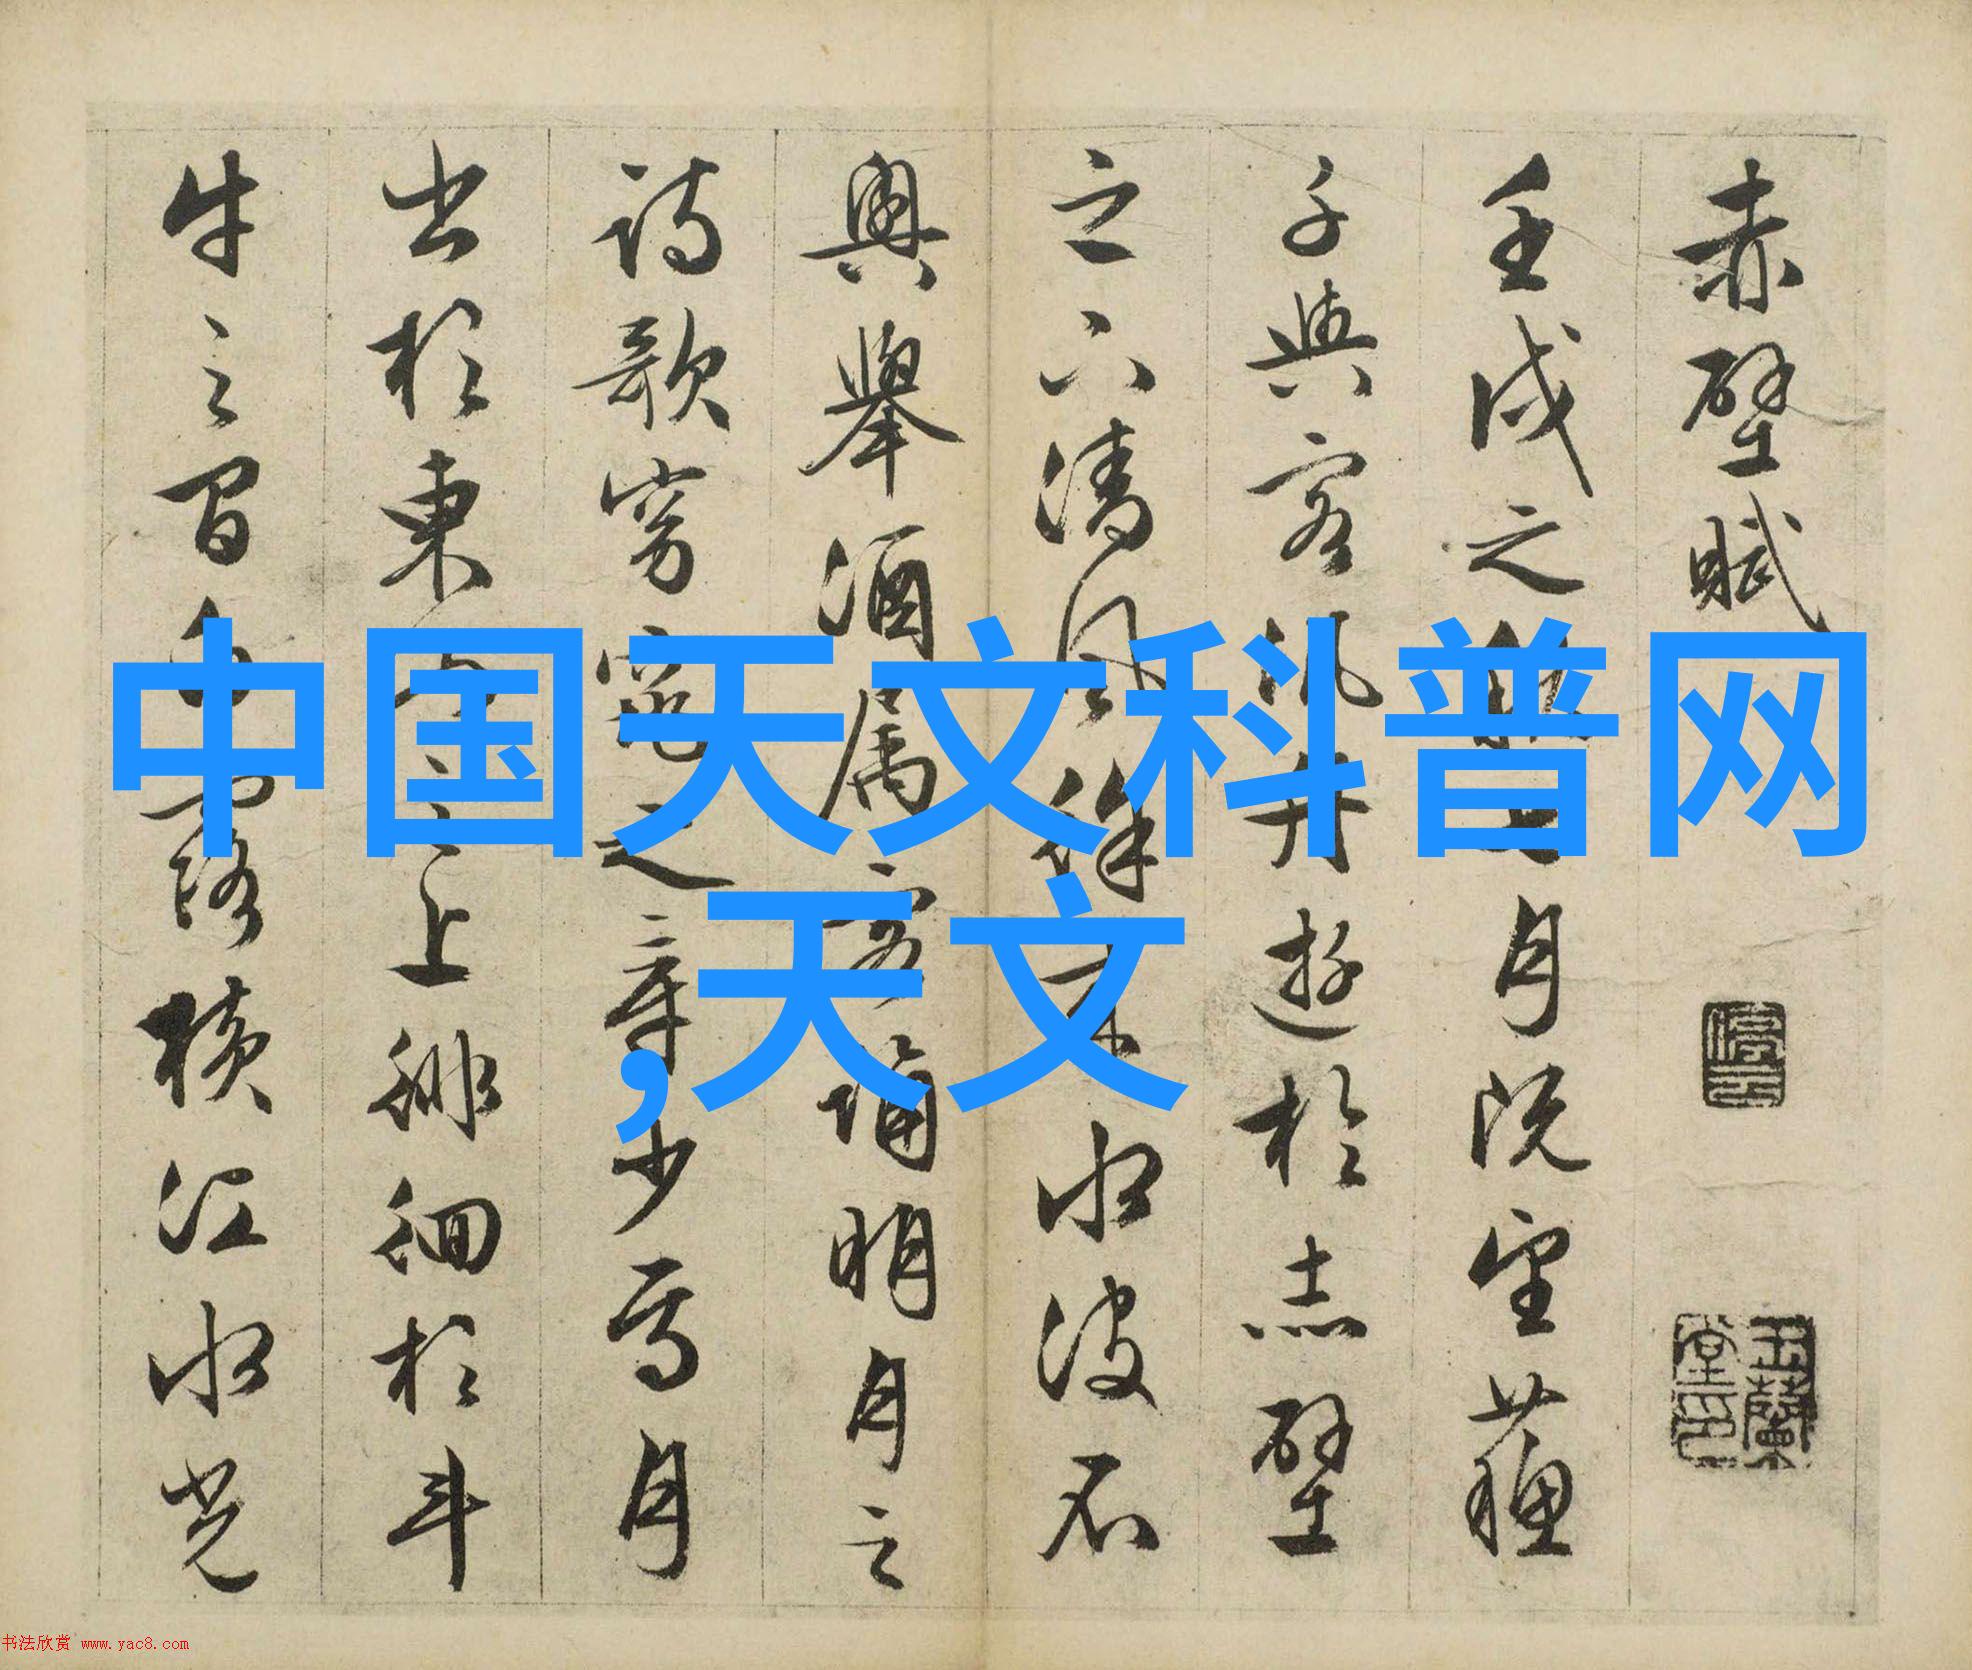 赤壁賦
壬戌之秋七月既望蘇
子與客泛舟遊於赤壁
之下清風徐來水波不
興舉酒属客誦明月之
詩歌窈窕之章少焉月
出於東山之上徘徊於斗
牛之間白露橫江水光
玉蘭堂印
中国天文科普网
,天文
书法欣赏 www.yac8.com